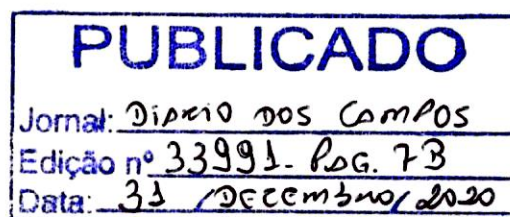 PUBLICADO
Jornal: DIARIO DOS CAMPOS
Edição nº 33991- PAG. 7B
Data: 31 / DEZEMBRO / 2020